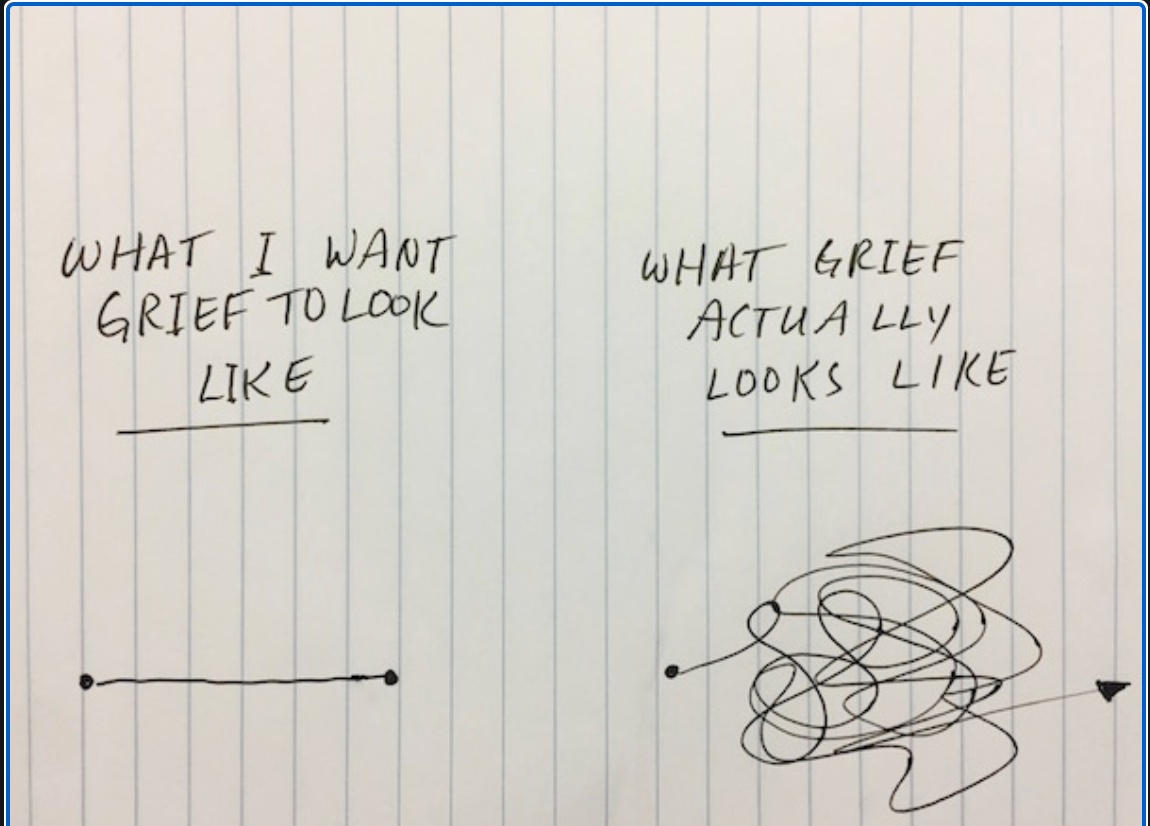 WHAT I WANT
GRIEF TO LOOK
LIKE
WHAT GRIEF
ACTUALLY
LOOKS LIKE